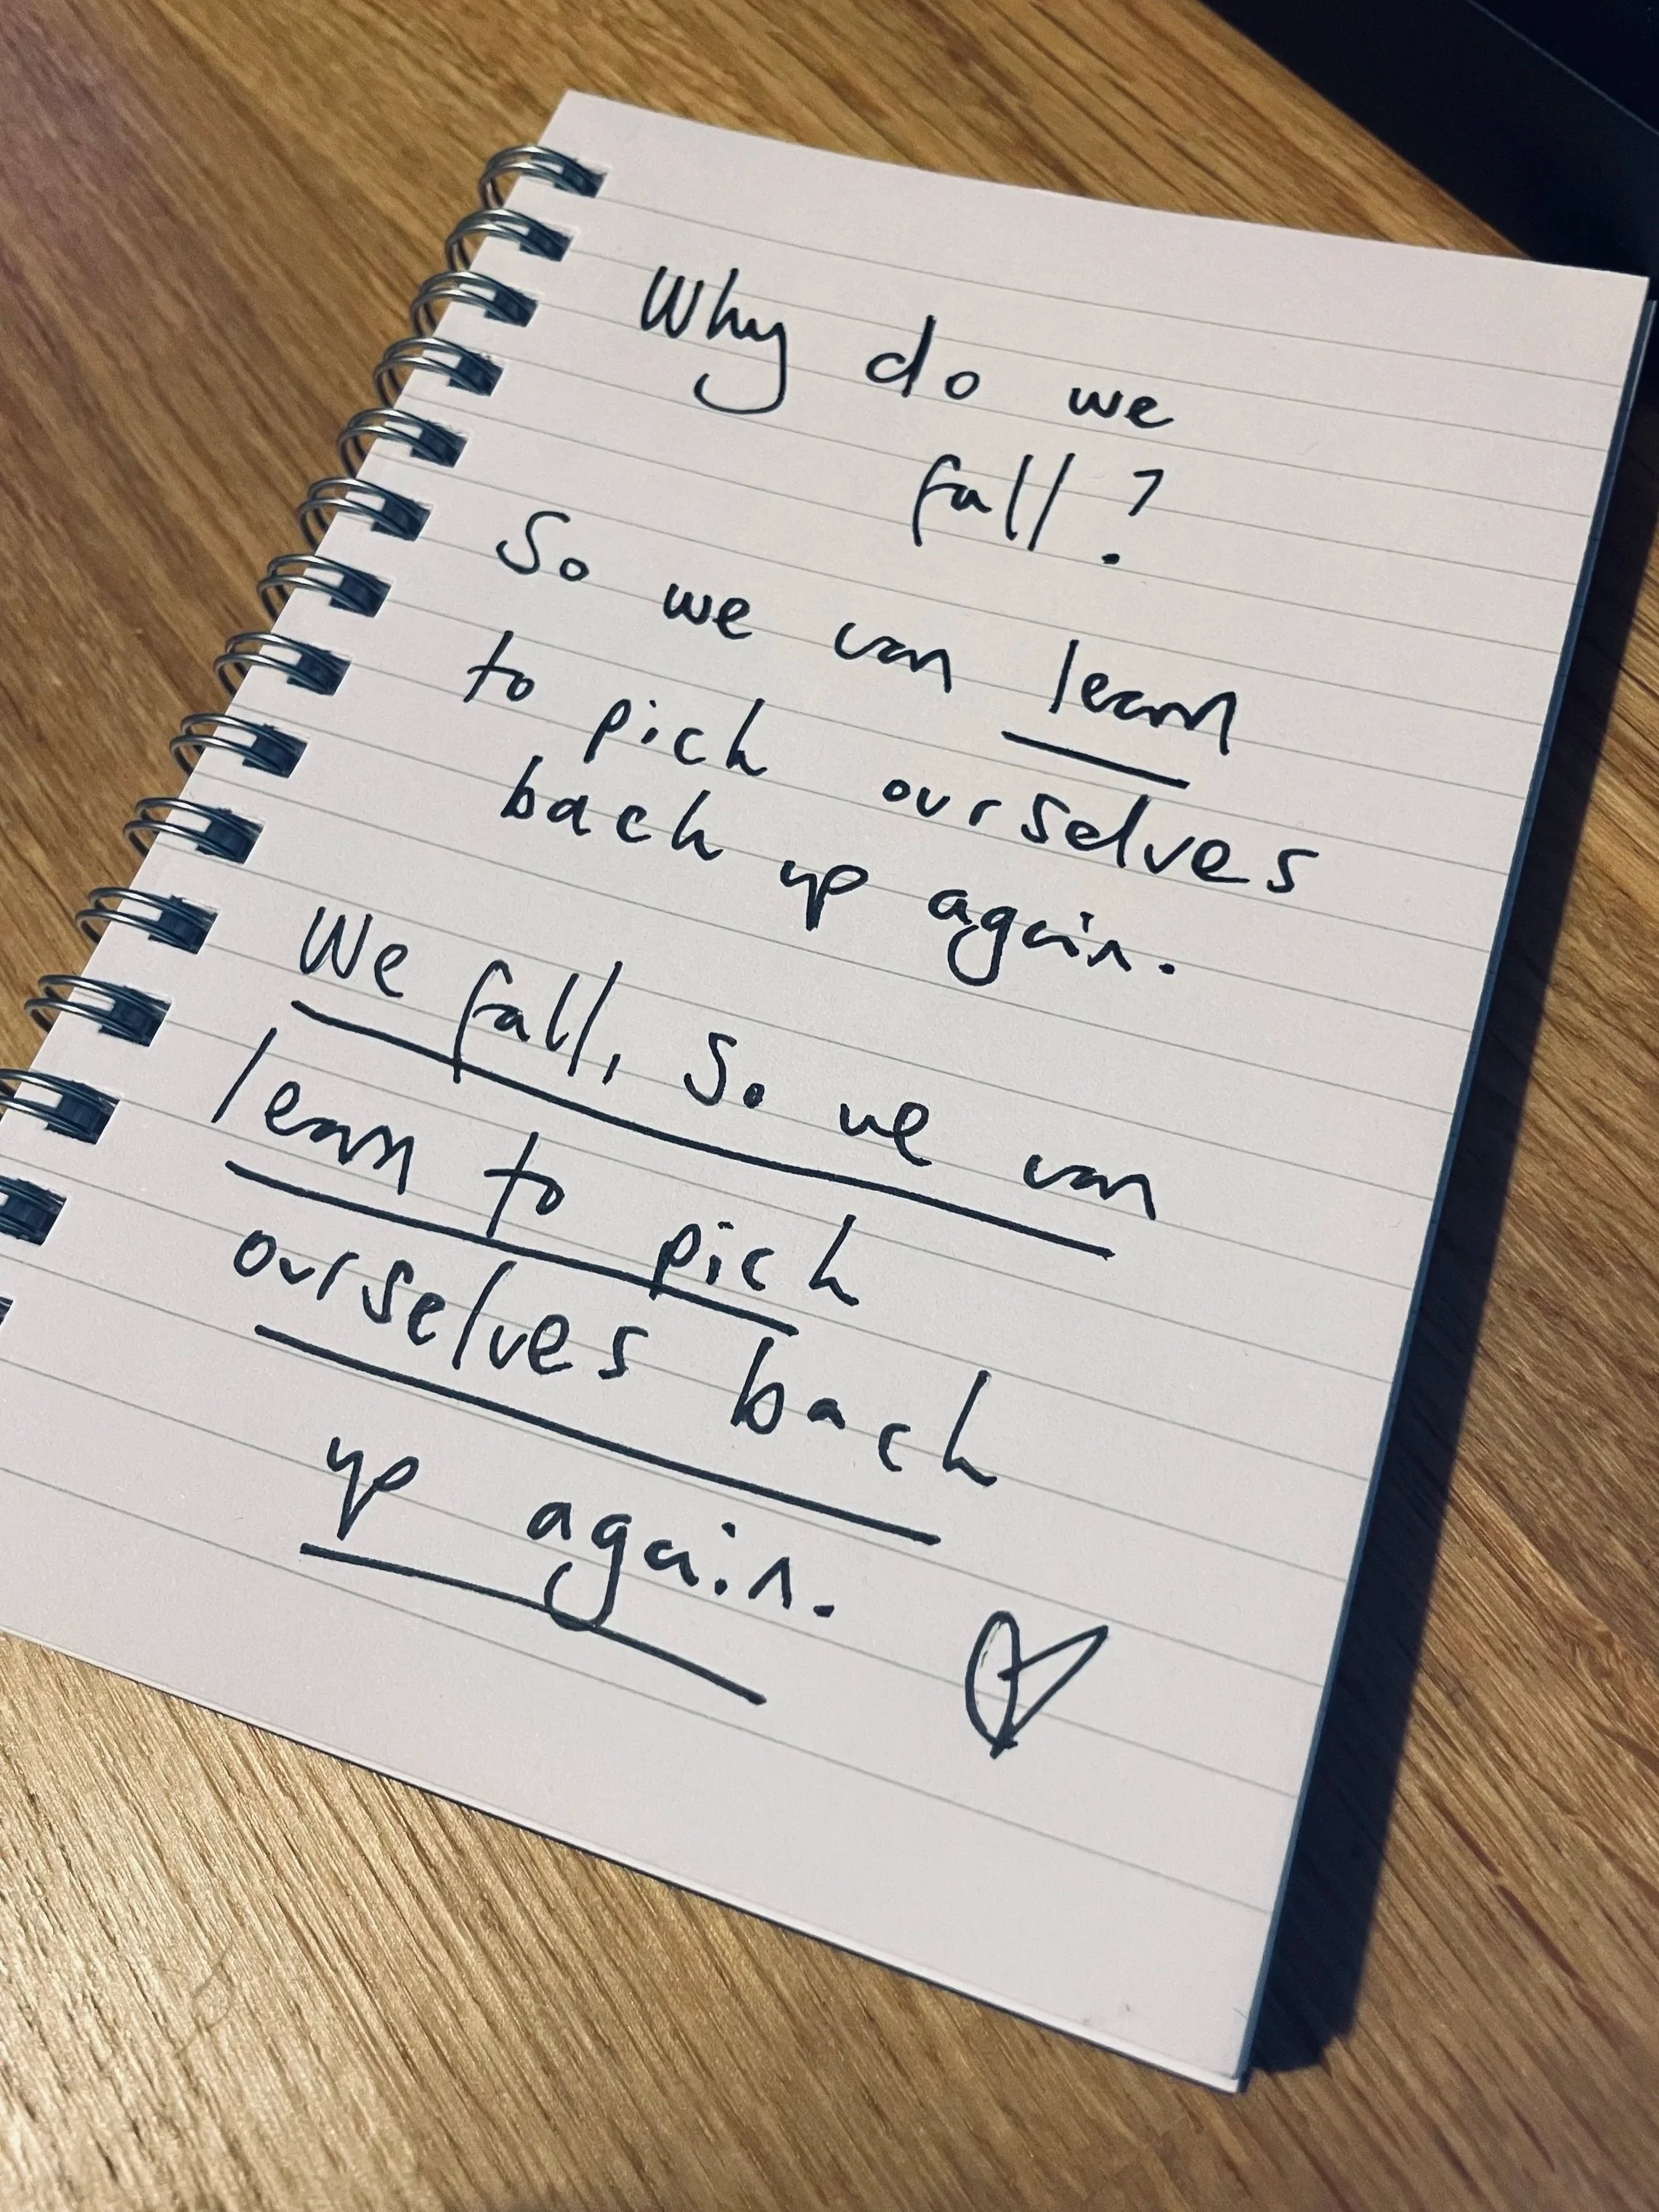 Why do we
fall?
So we can learn
to pick ourselves
back up again.
We fall, so we can
learn to pick
ourselves back
up again.